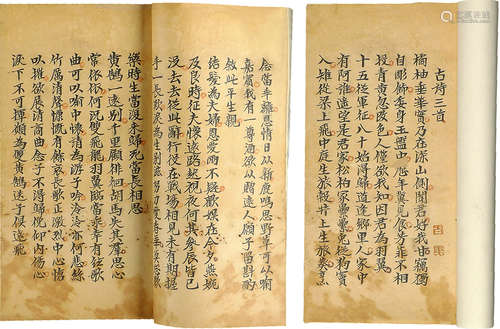 古詩三首
橘柚垂華實乃在深山側聞君好我甘竊獨
自雕飾委身玉盤中歷年冀見食芳菲不相
投青黃忽改色人儻欲我知因君為羽翼
十五從軍征八十始得歸道逢鄉里人家中
有阿誰遙望是君家松柏冢纍纍兔從狗竇
入雉從梁上飛中庭生旅穀井上生旅葵
念當乖離恩情日以新鹿鳴思野草可以喻
嘉賓我有一尊酒欲以贈遠人願子留斟酌
敘此平生親
結髮為夫婦恩愛兩不疑歡娛在今夕燕婉
及良時征夫懷遠路起視夜何其參辰皆已
沒去去從此辭行役在戰場相見未有期握
手一長歎淚為生別滋努力愛春華莫忘歡
樂時生當復來歸死當長相思
黃鵠一遠別千里顧徘徊胡馬失其羣思心
常依依何況雙飛龍羽翼臨當乖幸有絃歌
曲可以喻中懷請為游子吟泠泠一何悲絲
竹厲清聲慷慨有餘哀長歌正激烈中心愴
以摧欲展清商曲念子不得歸俛仰內傷心
淚下不可揮願為雙黃鵠送子俱遠飛